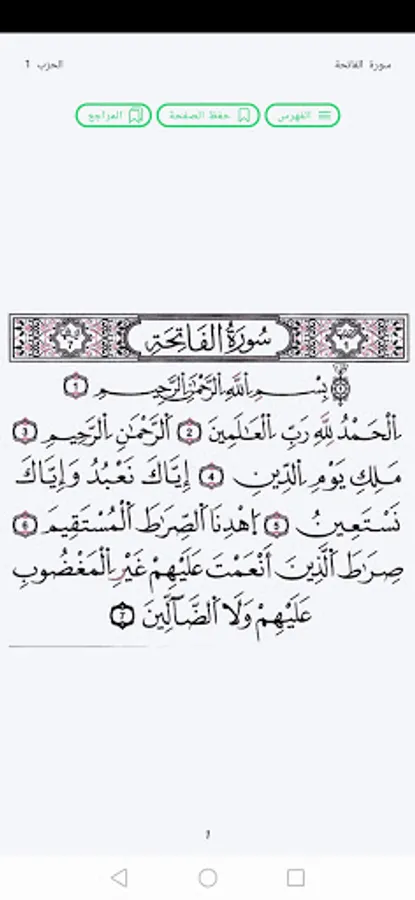 سورة الفاتحة
الحزب 1
الفهرس
حفظ الصفحة
المراجع
سُورَةُ الْفَاتِحَةِ
بِسْمِ اللَّهِ الرَّحْمَٰنِ الرَّحِيمِ 1
الْحَمْدُ لِلَّهِ رَبِّ الْعَالَمِينَ 2 الرَّحْمَٰنِ الرَّحِيمِ 3
مَلِكِ يَوْمِ الدِّينِ 4 إِيَّاكَ نَعْبُدُ وَإِيَّاكَ
نَسْتَعِينُ 5 اِهْدِنَا الصِّرَاطَ الْمُسْتَقِيمَ 6
صِرَاطَ الَّذِينَ أَنْعَمْتَ عَلَيْهِمْ غَيْرِ الْمَغْضُوبِ
عَلَيْهِمْ وَلَا الضَّآلِّينَ 7
1